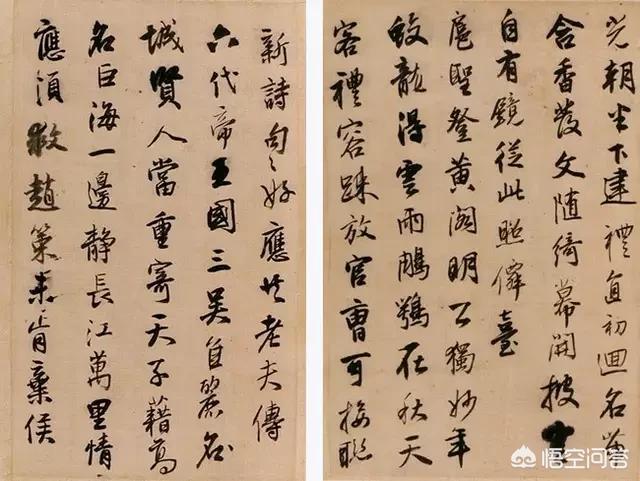 光朝半下建禮直初迴名筆
含香發文隨綺幕開披雲
自有鏡從此照臺
扈聖登黃閣明公獨妙年
蛟龍得雲雨鵰鶚在秋天
客禮容踈放官曹可接聯
新詩句々好應任老夫傳
六代帝王國三吳自麗名
城賢人當重寄天子藉高
名巨海一邊靜長江萬里情
應須救趙策未肯棄侯
悟空问答